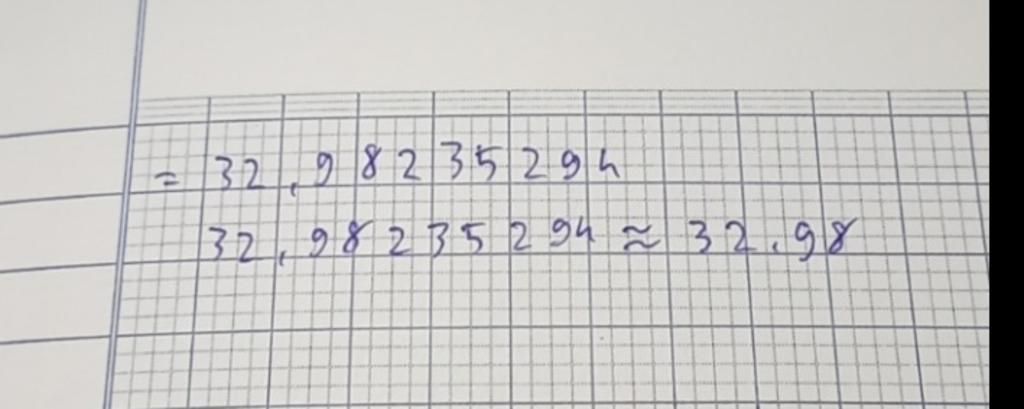 = 32,98235294
32,98235294 ≈ 32.98